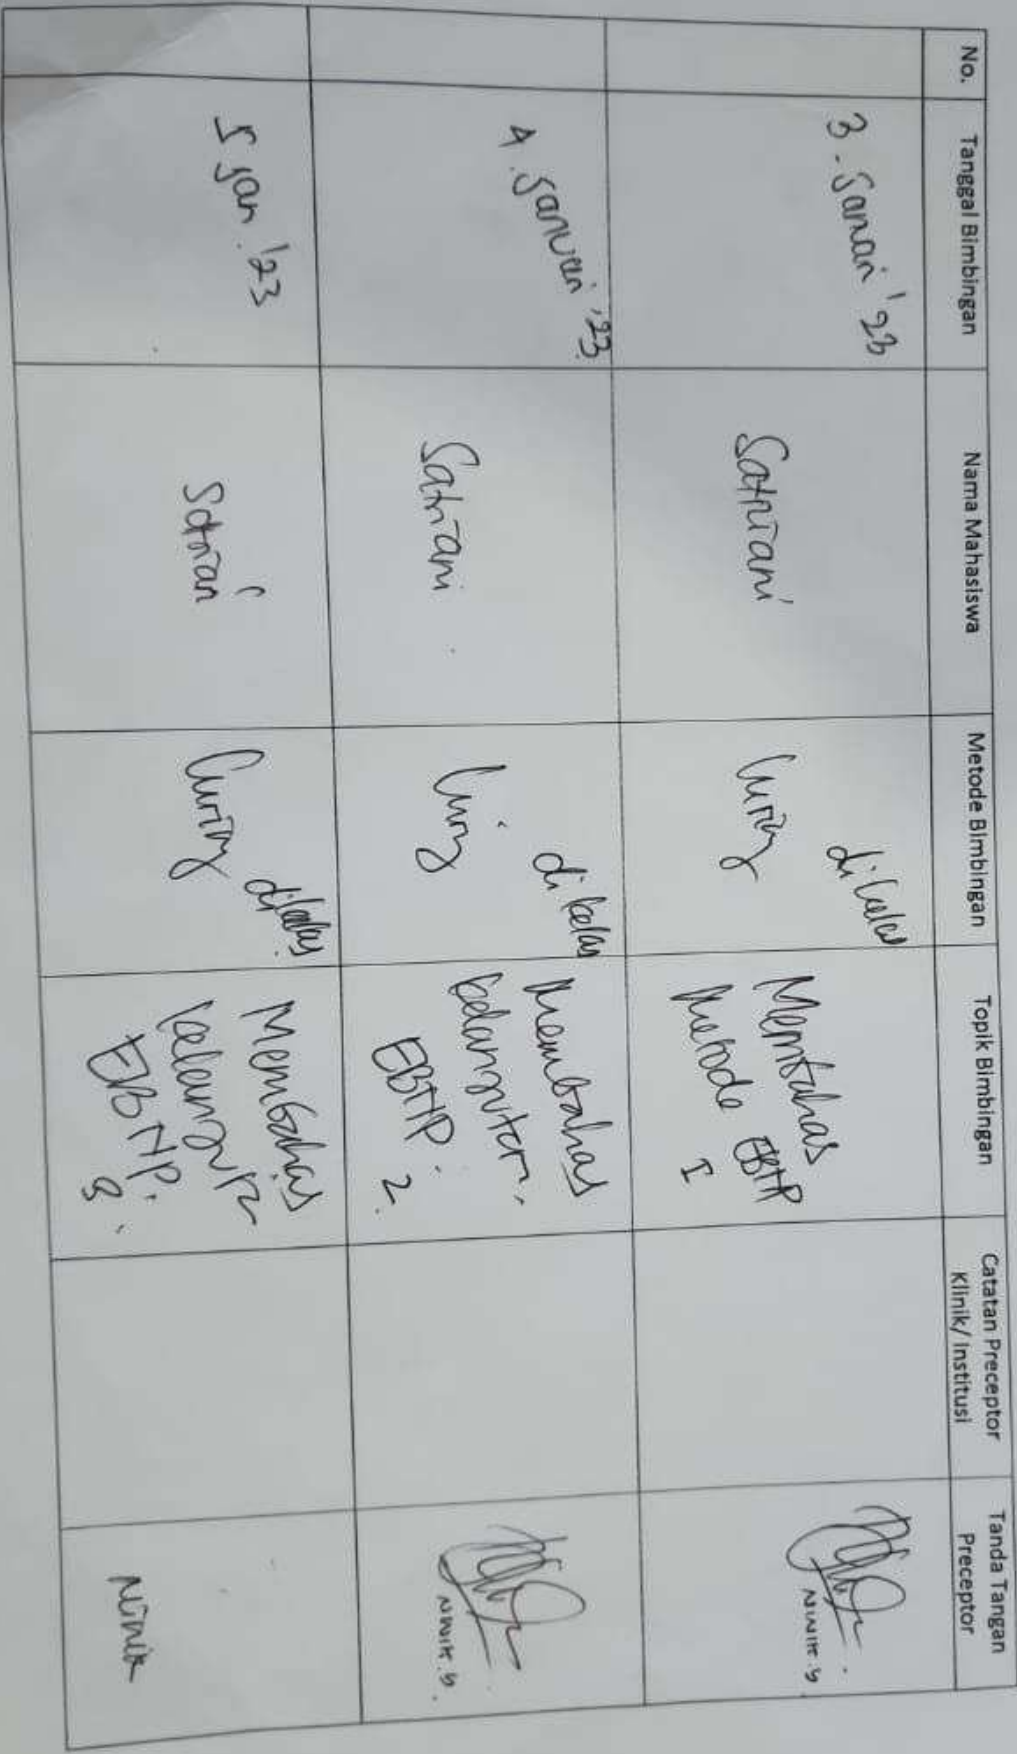 No.
Tanggal Bimbingan
Nama Mahasiswa
Metode Bimbingan
Topik Bimbingan
Catatan Preceptor
Klinik/ Institusi
Tanda Tangan
Preceptor
3. Januari '23
Satriani
Luring
di kelas
Membahas
Metode EBNP
I
NINIK.Y
4. Januari '23
Satriani
Luring
di kelas
Membahas
EBNP.
2.
NINIK.Y
5 Jan. '23
Satriani
Luring
di kelas
Membahas
EBNP.
3.
Ninik